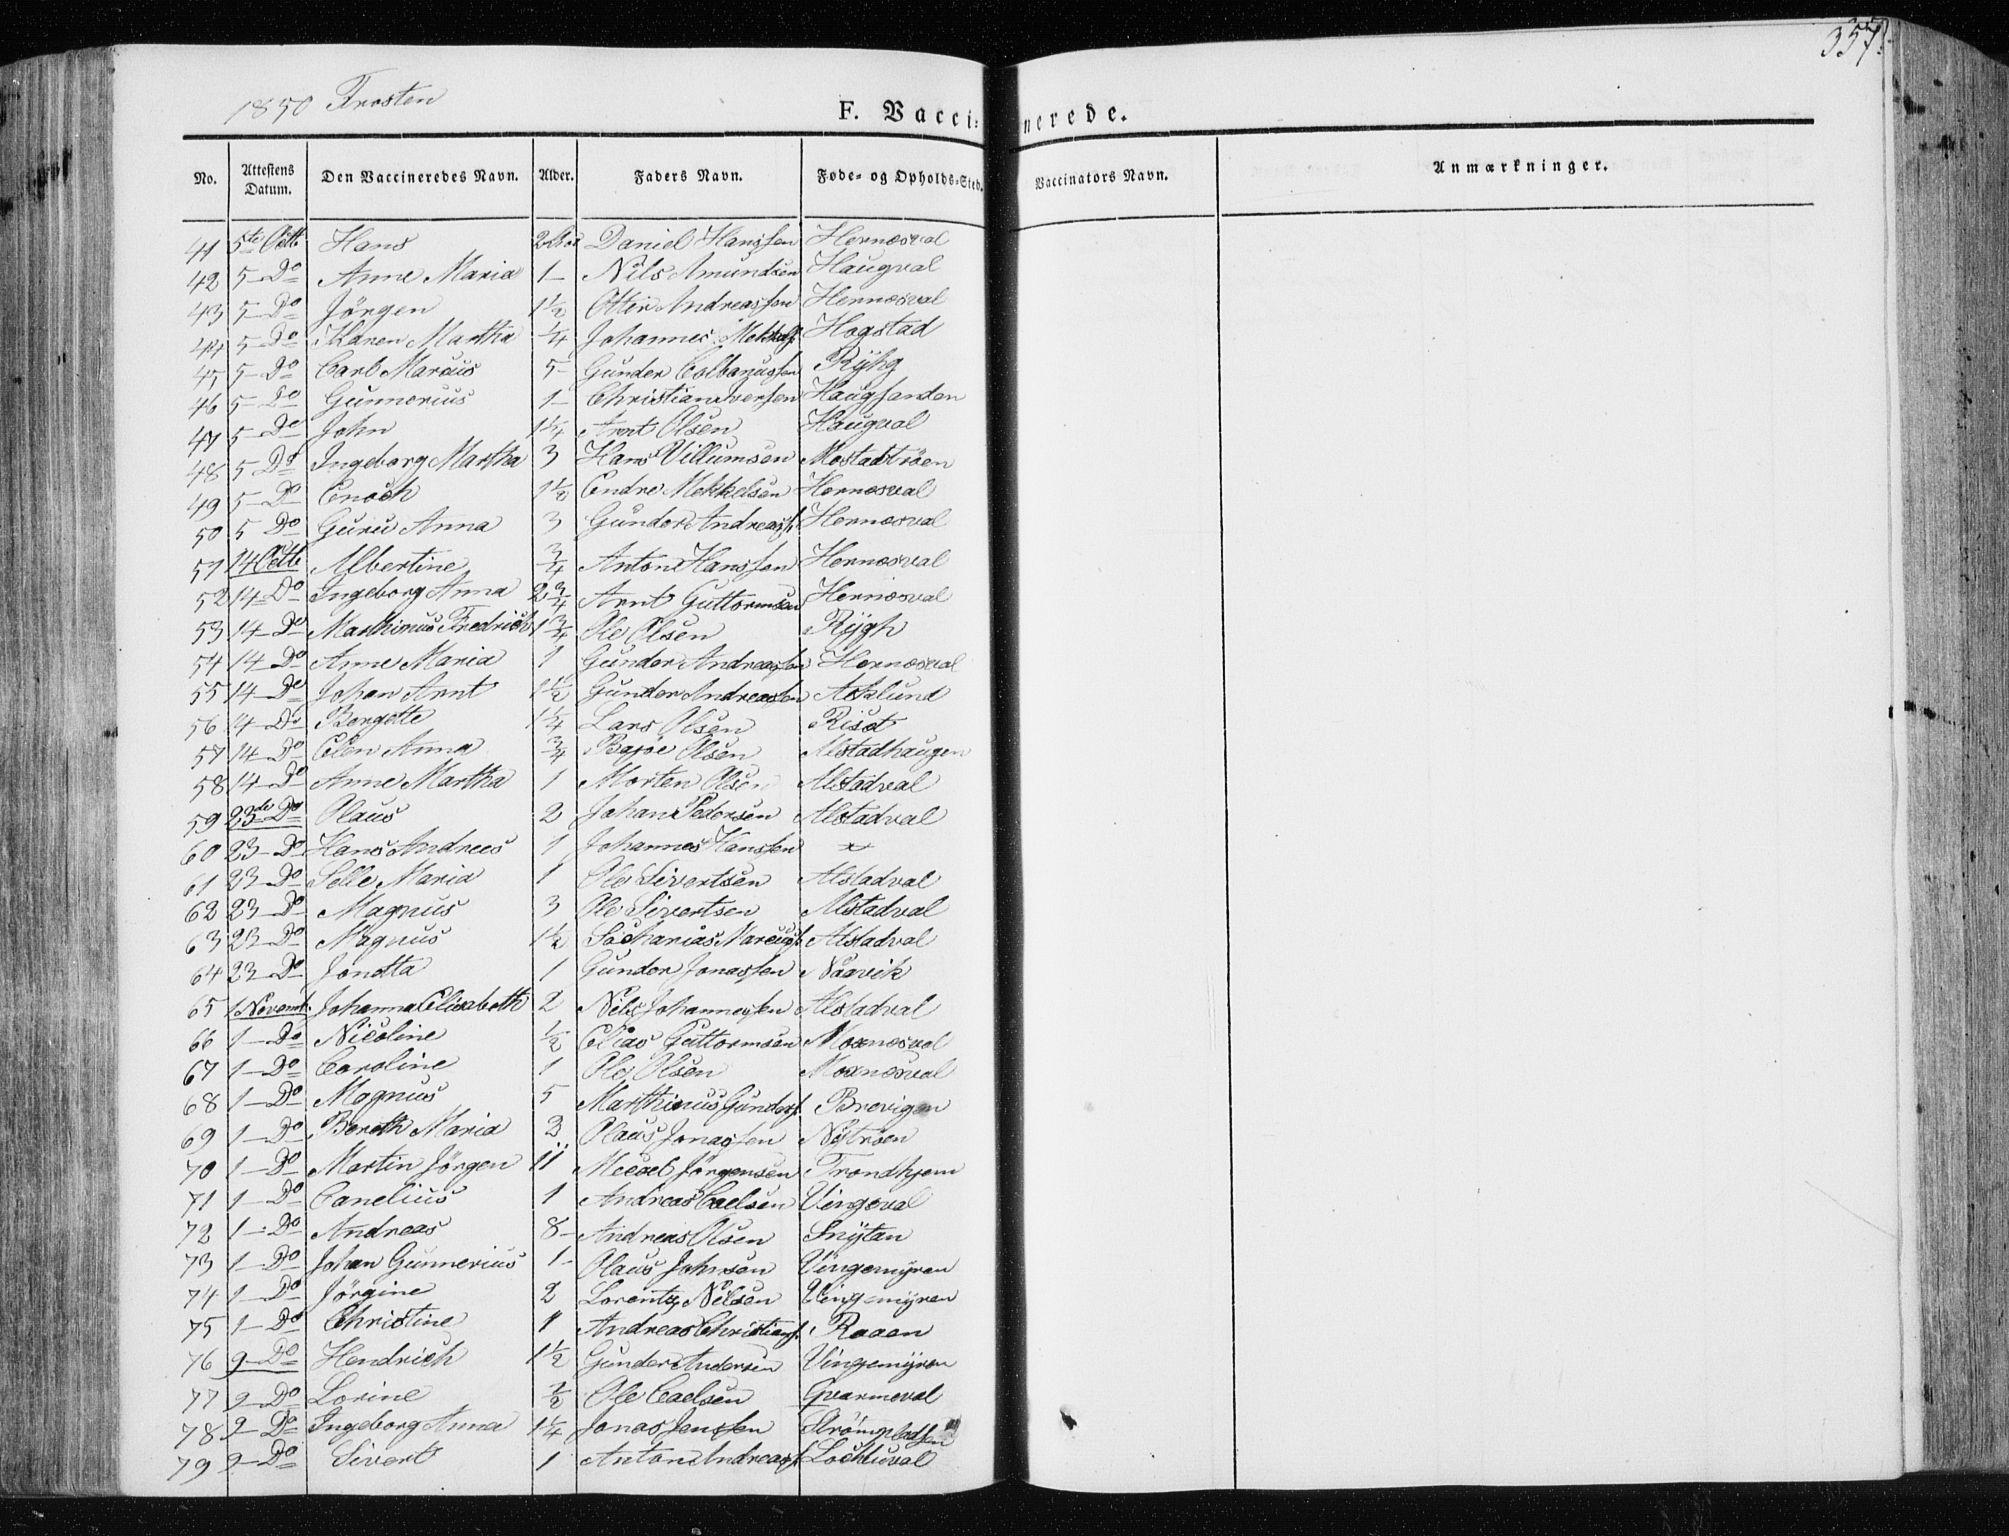 1850 Frosten
357.
F. Vaccinerede.
No. | Attestens Datum. | Den Vaccineredes Navn. | Alder. | Faders Navn. | Føde- og Opholds-Sted. | Vaccinators Navn. | Anmærkninger.
41 5te Octb Hans 2 Daniel Hanssen Hernæsval
42 5 Do Anne Maria 1 Nils Amundsen Haugval
43 5 Do Jörgen 1 1/2 Otter Andreassen Hernæsval
44 5 Do Karen Martha 1/4 Johannes Hogstad
45 5 Do Carl Marcus 5 Gunder Colbanussen Rÿhg
46 5 Do Gunnerius 1 Christian Iversen Haugsanden
47 5 Do John 1 1/4 Arnt Olsen Haugval
48 5 Do Ingeborg Martha 3 Hans Villumsen Mostadtröen
49 5 Do Enoch 1 1/2 Endre Mekkelsen Hernæsval
50 5 Do Guru Anna 3 Gunder Andreass. Hernæsval
51 14 Octb Albertine 3/4 Anton Hanssen Hernæsval
52 14 Do Ingeborg Anna 2 3/4 Arnt Guttormsen Hernæsval
53 14 Do Marthinus Fredrich 1 3/4 Ole Olsen Rÿgh
54 14 Do Anne Maria 1 Gunder Andreassen Hernæsval
55 14 Do Johan Arnt 1 1/2 Gunder Andreassen Aslund
56 14 Do Bergitte 1 1/4 Lars Olsen
57 14 Do Elen Anna 3/4 Olsen Alstadhaugen
58 14 Do Anne Martha 1 Morten Olsen Alstadval
59 23de Do Olaus 2 Johan Pedersen Alstadval
60 23 Do Hans Andreas 1 Johannes Hanssen
61 23 Do Selle Maria 1 Ole Sivertsen Alstadval
62 23 Do Magnus 3 Ole Sivertsen Alstadval
63 23 Do Magnus 1 1/2 Sacharias Marcuss. Alstadval
64 23 Do Jonetta 1 Gunder Jonassen Naavik
65 1 Novemb. Johanna Elisabeth 2 Nils Johannessen Alstadval
66 1 Do Nicoline 1/2 Elias Guttormsen Moxnesval
67 1 Do Caroline 1 Ole Olsen Moxnesval
68 1 Do Magnus 5 Marthinus Gunders. Brevigen
69 1 Do Bereth Maria 3 Olaus Jonassen Nÿtröen
70 1 Do Martin Jörgen 11 Jörgensen Trondhjem
71 1 Do Canelius 1 Andreas Caelsen Vingeval
72 1 Do Andreas 8 Andreas Olsen Snÿtan
73 1 Do Johan Gunnerius 1 Olaus Johnsen Vingemÿren
74 1 Do Jörgine 2 Lorents Nilsen Vingemÿren
75 1 Do Christine 1 Andreas Christians. Raaen
76 9 Do Hendrich 1 1/2 Gunder Andersen Vingemÿren
77 9 Do Lorine 1/2 Ole Caelsen Qvarmeval
78 9 Do Ingeborg Anna 1 1/4 Jonas Janssen Strömpladsen
79 9 Do Sivert 1 Anton Andreass. Lochtuval